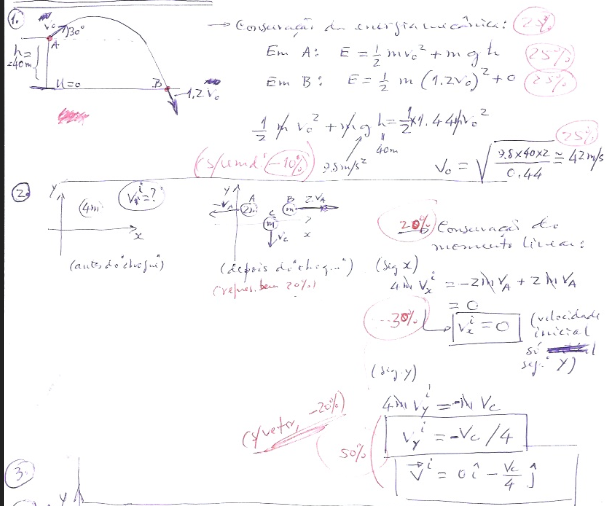 1.
v₀
30°
A
h=
40m
U=0
B
1.2v₀
→ Conservação da energia mecânica: 25%
Em A: E = ½ m v₀² + m g h 25%
Em B: E = ½ m (1.2v₀)² + 0 25%
½ m v₀² + m g h = ½ × 1.44 m v₀²
40m
9.8m/s²
(s/unid. -10%)
25%
v₀ = √(9.8×40×2 / 0.44) ≅ 42 m/s
2.
Y
4m
vⁱ = ?
x
(antes do choque)
Y
A
2m
v_A
B
m
2v_A
C
m
v_C
x
(depois do choque)
(repres. bem 20%)
20% Conservação do
momento linear:
(seg x)
4m vₓⁱ = -2m v_A + 2m v_A
= 0
30%
vₓⁱ = 0
(velocidade
inicial
só
seg. Y)
(seg. y)
4m v_yⁱ = -m v_C
v_yⁱ = -v_C / 4
(s/vetor, -20%)
50%
v⃗ⁱ = 0 î - v_C/4 ĵ
3.
Y